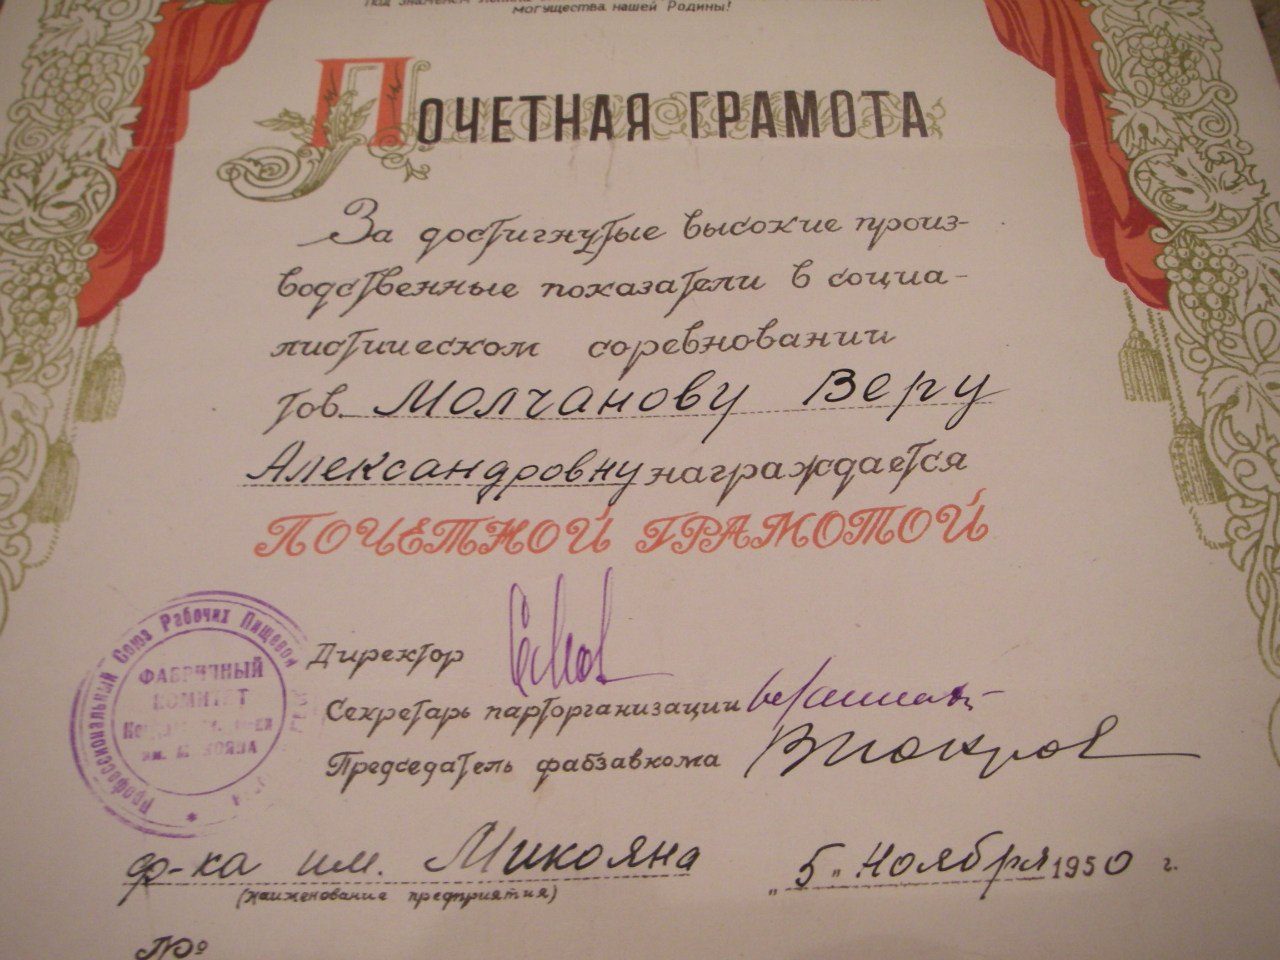 Под знаменем Ленина
могущества нашей Родины!
ПОЧЕТНАЯ ГРАМОТА
За достигнутые высокие произ-
водственные показатели в социа-
листическом соревновании
тов. Молчанову Веру
Александровну награждается
ПОЧЕТНОЙ ГРАМОТОЙ
Профессиональный Союз Рабочих Пищевой
ФАБРИЧНЫЙ
КОМИТЕТ
им. Микояна
Директор
Секретарь парторганизации
Председатель фабзавкома
ф-ка им. Микояна „5" Ноября 1950 г.
(наименование предприятия)
№